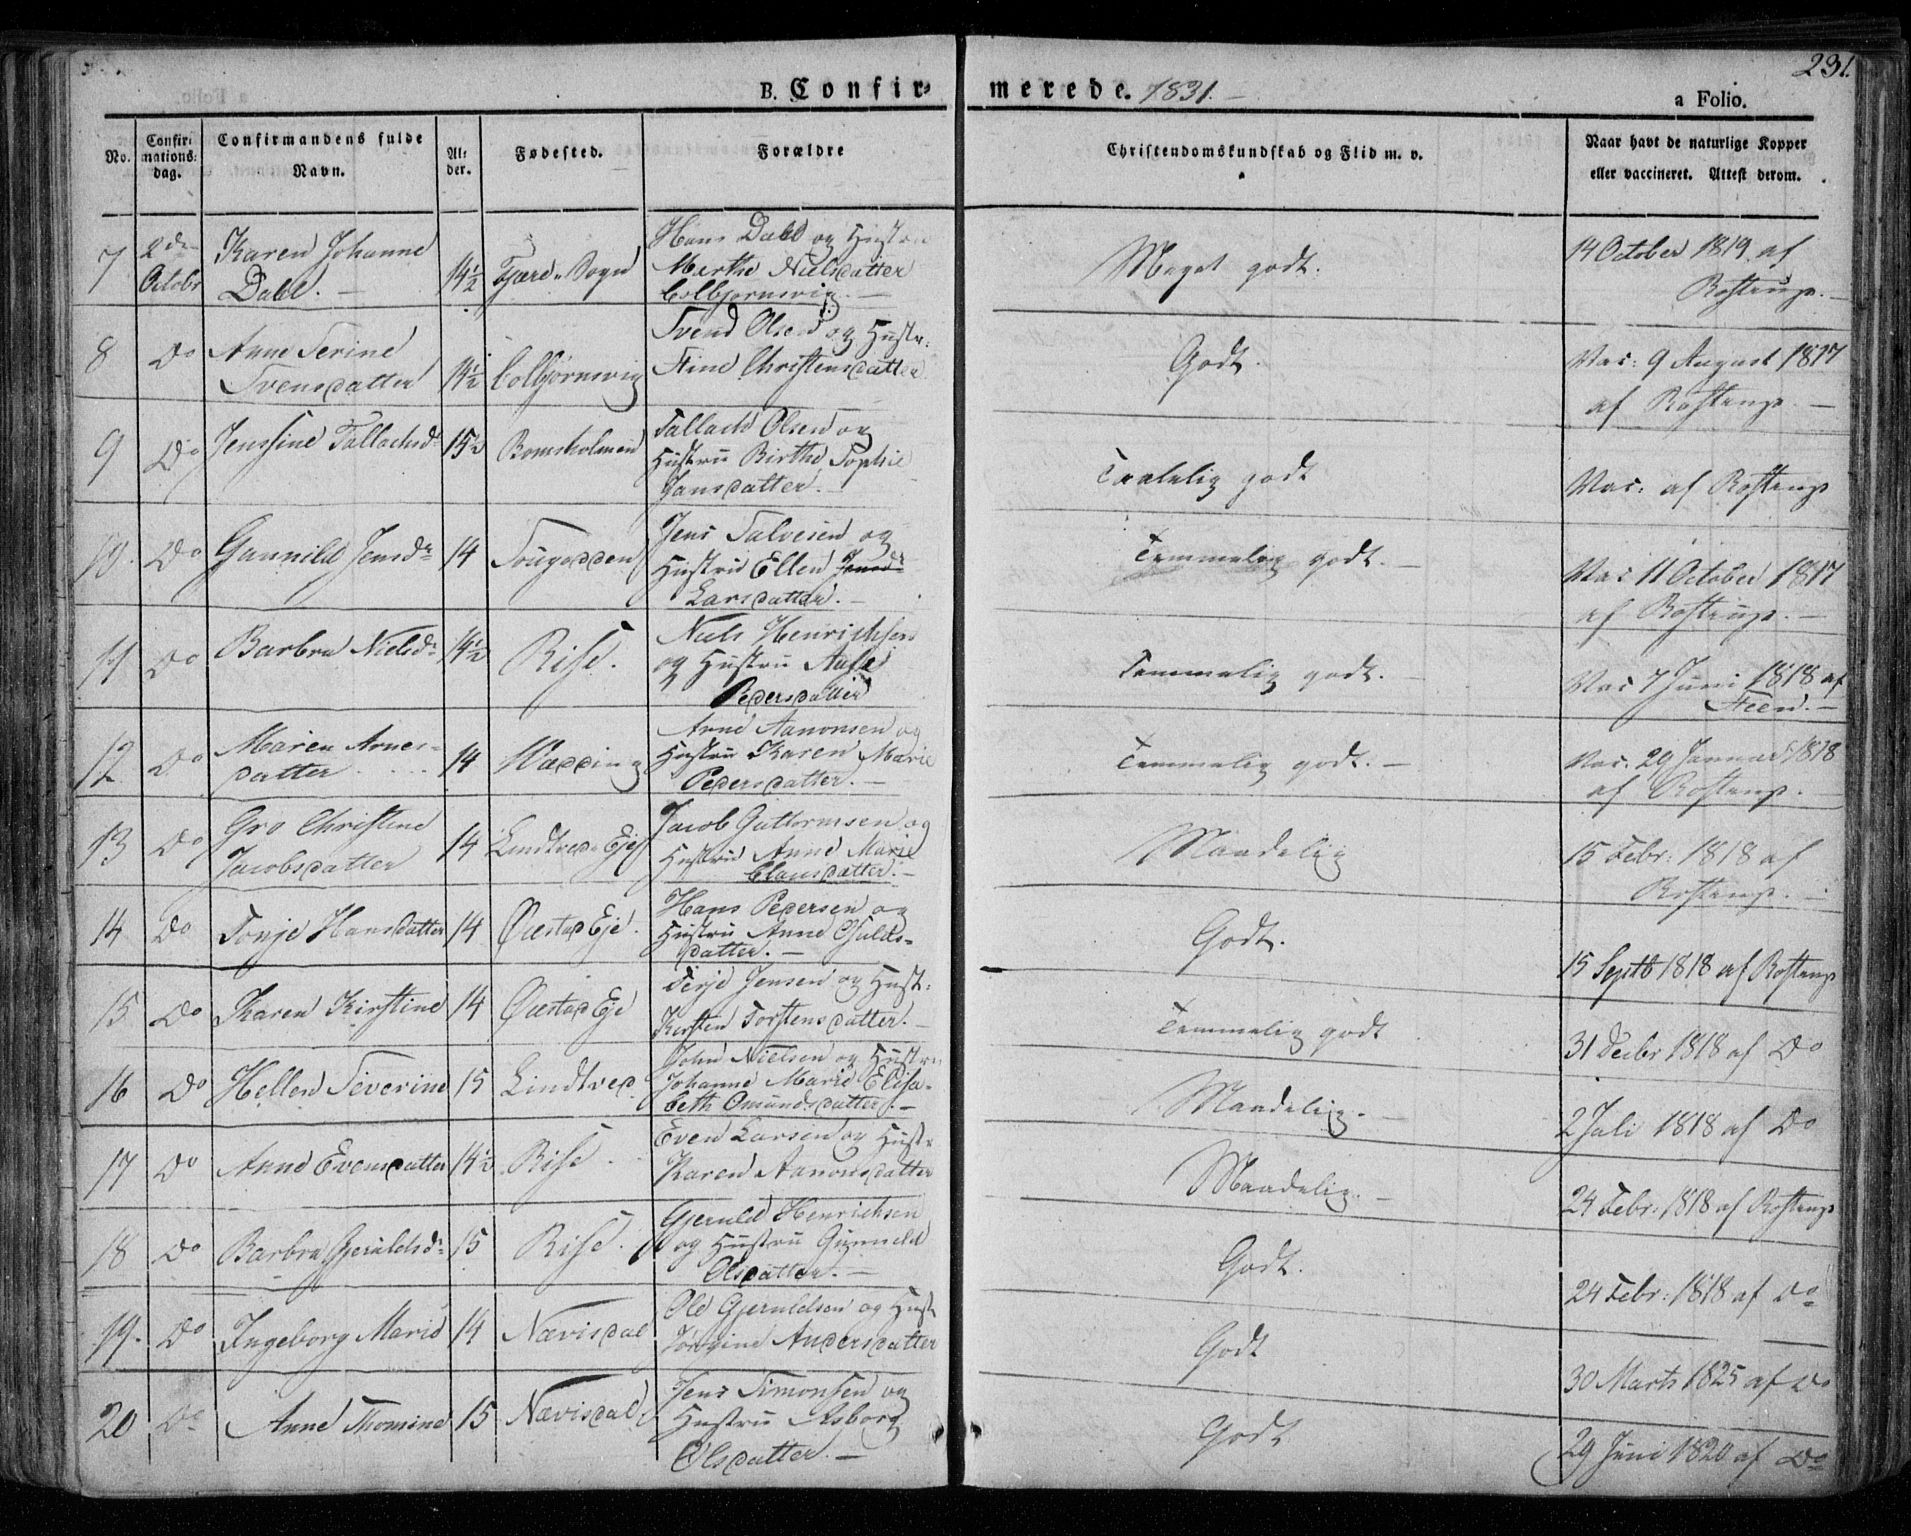 231.
B. Confir- merede. 1831. -
a Folio.
No.
Confir-
mations-
dag.
Confirmandens fulde
Navn.
Al-
der.
Fødested.
Forældre
Christendomskundskab og Flid m. v.
Naar havt de naturlige Kopper
eller vaccineret. Attest derom.
7 2de Octobr Karen Johanne
Dahl. - 14½ Fjære Sogn
Hans Dahl og Hustru
Marthe Nielsdatter
Colbjørnsvig. -
Meget godt.
14 October 1819 af
Rostrup. -
8 Do Anne Serine
Svensdatter 14½ Colbjørnsvig
Svend Olsen og Hustr:
Stine Christensdatter
Godt.
Vac: 9 August 1817
af Rostrup. -
9 Do Jenssine Tallachsdr 15½ Bomsholmen
Tallach Olsen og
Hustru Birthe Sophie
Jansdatter. -
Taalelig godt
Vac: af Rostrup
10. Do Gunnild Jensdr 14 Songedden
Jens Salvesen og
Hustru Ellen Jensdr
Larsdatter. -
Temmelig godt. -
Vac 11 October 1817
af Rostrup. -
11 Do Barbra Nielsdr 14½ Rise.
Niels Henrichsen
og Hustru Aase
Pedersdatter
Temmelig godt. -
Vac 7 Juni 1818 af
Steen. -
12 Do Maren Arnes-
datter 14 Wedding
Arne Aanonsen og
Hustru Karen Marie
Pedersdatter. -
Temmelig godt. -
Vac. 29 Januar 1818
af Rostrup.
13 Do Gro Christine
Jacobsdatter 14 Lindtved Eje
Jacob Guttormsen og
Hustru Anne Marie
Clausdatter. -
Maadelig
15 Febr: 1818 af
Rostrup. -
14 Do Tonje Hansdatter 14 Øiestad Eje.
Hans Pedersen og
Hustru Anne Gulds-
datter. -
Godt.
15 Septb 1818 af Rostrup
15 Do Karen Kirstine 14 Øiestad Eje
Terje Jensen og Hust:
Kirsten Torstensdatter. -
Temmelig godt
31 Decbr 1818 af Do
16 Do Hellen Severine 15 Lindtved
John Nielsen og Hustru
Johanne Marie Elisa-
beth Omundsdatter. -
Maadelig. -
2 Juli 1818 af Do
17 Do Anne Evensdatter 14½ Rise.
Even Larsen og Hustr
Karen Aanonsdatter
Maadelig. -
24 Febr: 1818 af Rostrup
18 Do Barbra Gjeruldsdr 15 Rise.
Gjeruld Henrichsen
og Hustru Gunneld
Olsdatter. -
Godt.
24 Febr: 1818 af Do
19. Do Ingeborg Marie 14 Nævisdal
Ole Gjeruldsen og Hust
Jørgine Andersdatter
Godt
30 Marts 1825 af Do
20 Do Anne Thomine 15 Nævisdal
Jens Simonsen og
Hustru Asborg
Olsdatter. -
Godt
29 Juni 1820 af Do